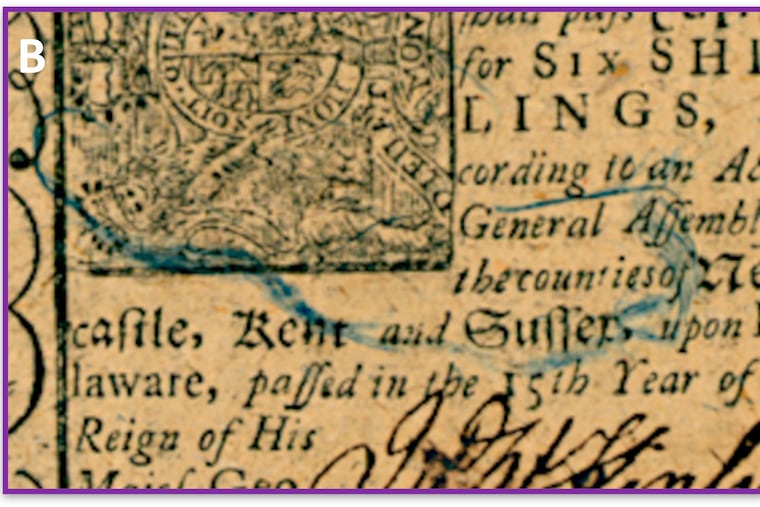 B
ſhall paſs
for SIX SHI
LINGS,
cording to an Ac
General Aſſembl
the counties of Ne
caſtle, Kent and Suſſex, upon
laware, paſſed in the 15th Year of
Reign of His
Majeſ Geo
SOIT HONI
DIEU